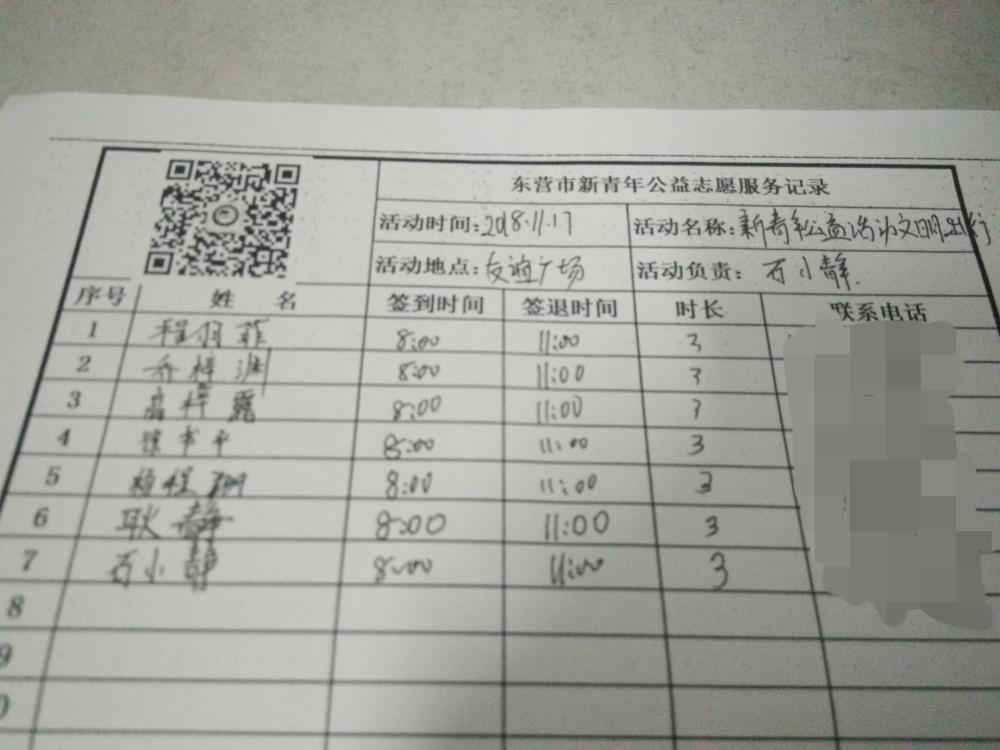 东营市新青年公益志愿服务记录
活动时间:2018.11.17 活动名称:新青年公益 文明出行
活动地点:友谊广场 活动负责:石小静
序号 姓 名 签到时间 签退时间 时长 联系电话
1 程羽菲 8:00 11:00 3
2 乔梓渊 8:00 11:00 3
3 高梓露 8:00 11:00 3
4 8:00 11:00 3
5 8:00 11:00 3
6 耿静 8:00 11:00 3
7 石小静 8:00 11:00 3
8
9
0